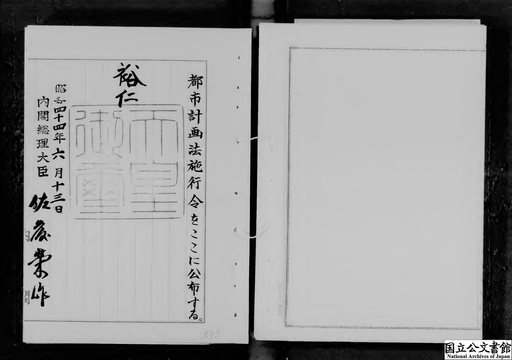 都市計画法施行令をここに公布する。
裕仁
天皇御璽
昭和四十四年六月十三日
内閣総理大臣 佐藤榮作
国立公文書館
National Archives of Japan